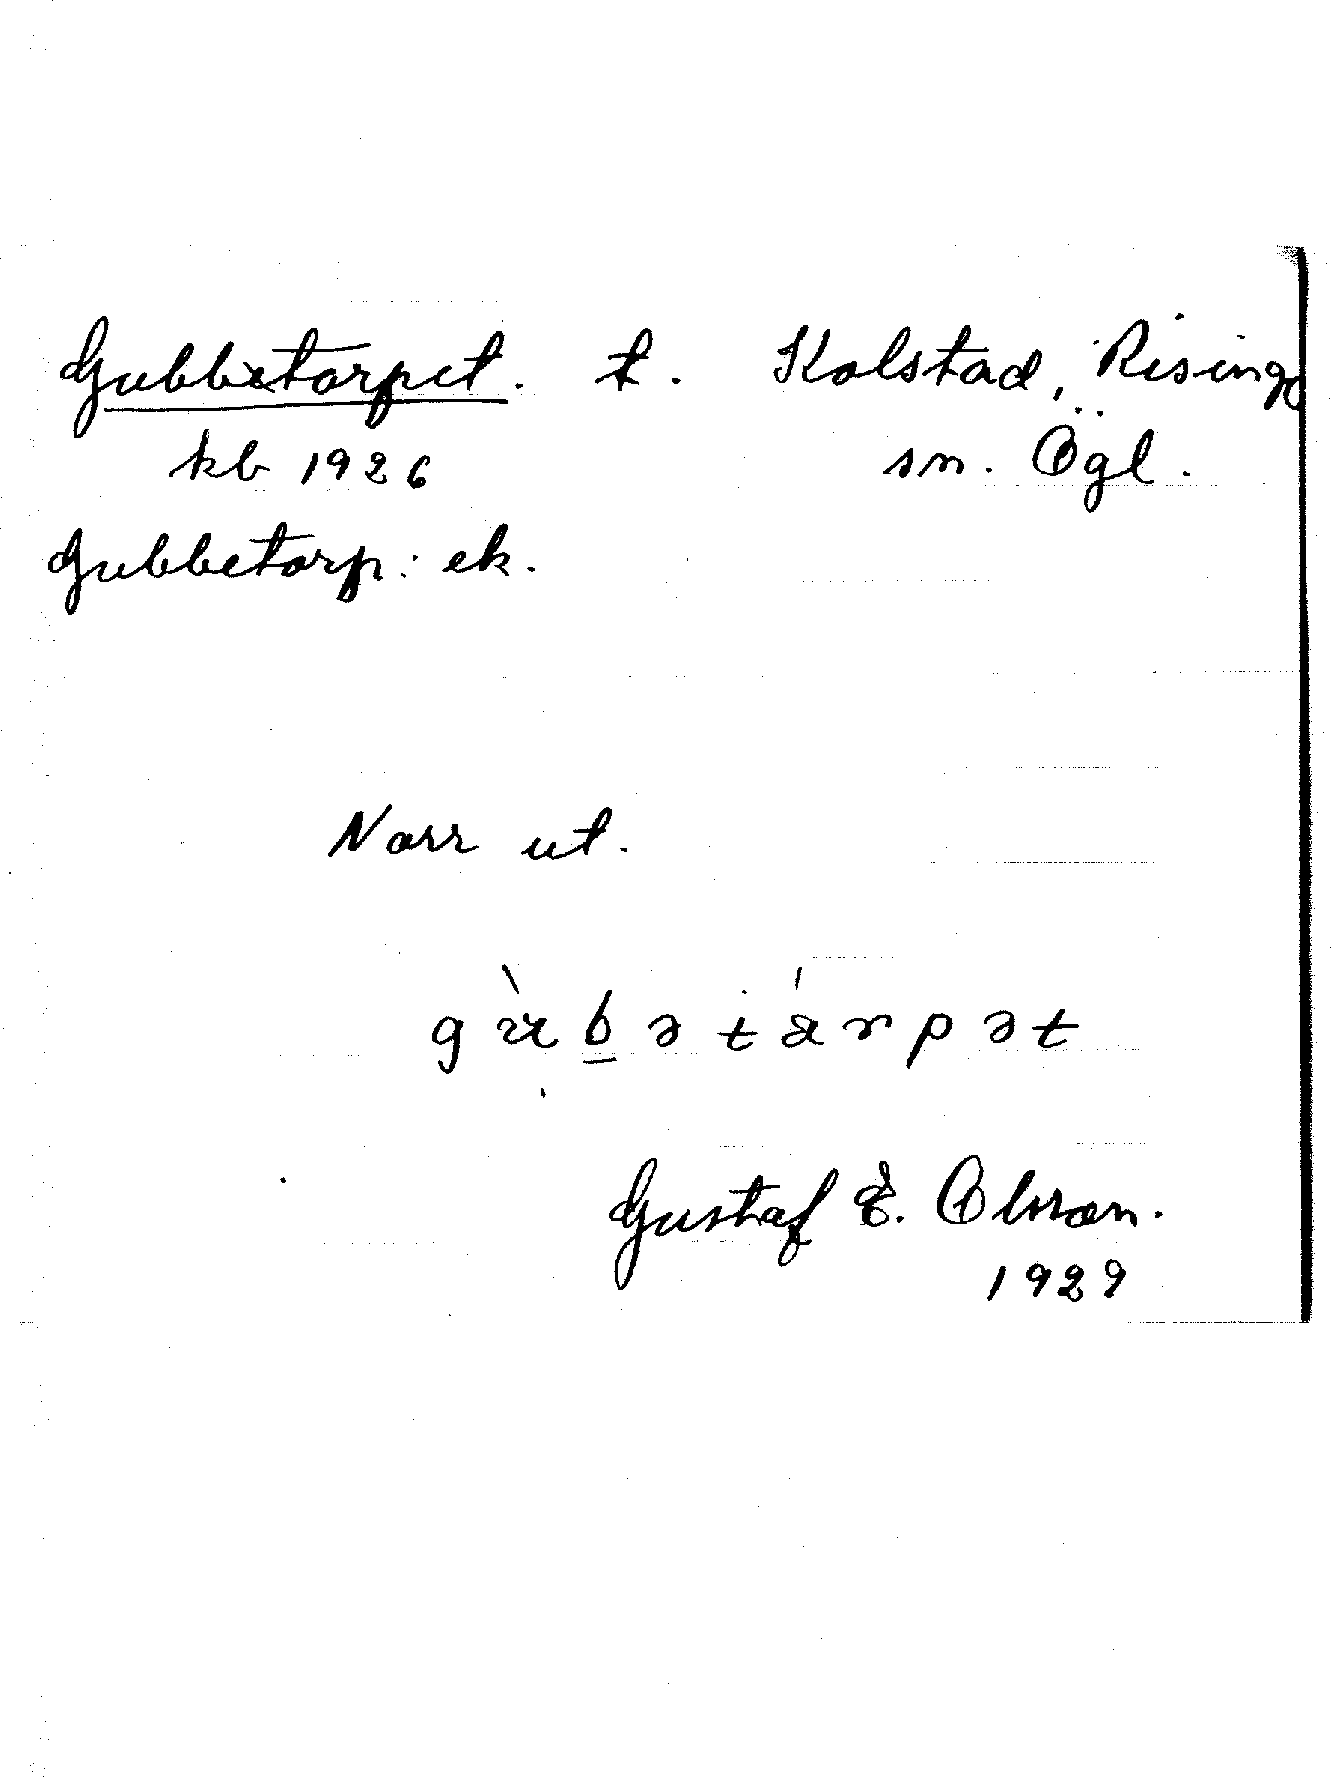 Gubbetorpet. t. Kolstad, Risinge
kb 1926 sn. Ögl.
Gubbetorp: ek.
Norr ut.
Gustaf E. Olsson.
1929